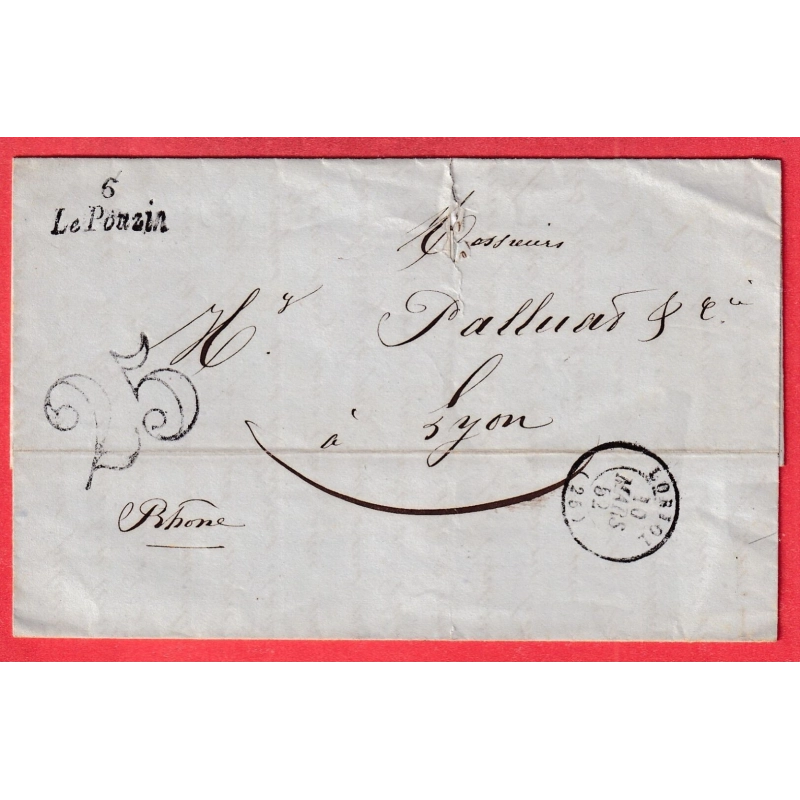 6
Le Pouzin
Messieurs
Hy Palluat & Cie
à Lyon
25
Rhône
LORIOL
10
MARS
52
(25)